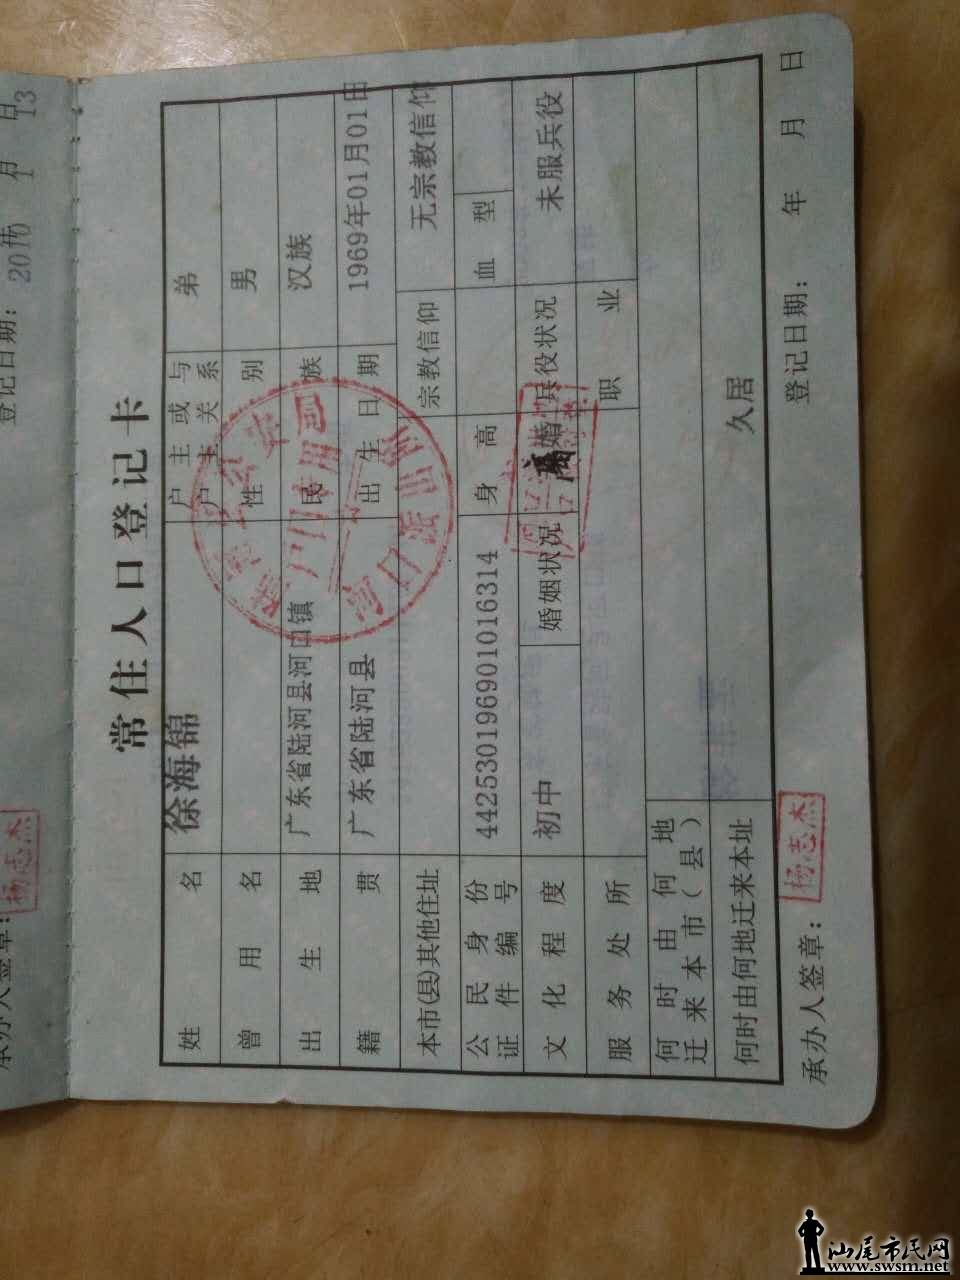 常住人口登记卡
姓名 徐海锦 户主或与户主关系 弟
曾用名 性别 男
出生地 广东省陆河县河口镇 民族 汉族
籍贯 广东省陆河县 出生日期 1969年01月01日
本市(县)其他住址 宗教信仰 无宗教信仰
公民身份证件编号 442530196901016314 身高 血型
文化程度 初中 婚姻状况 离婚 兵役状况 未服兵役
服务处所 职业
何时由何地迁来本市(县)
何时由何地迁来本址 久居
承办人签章: 杨志杰 登记日期: 年 月 日
承办人签章: 杨志杰 登记日期:
汕尾市民网
www.swsm.net